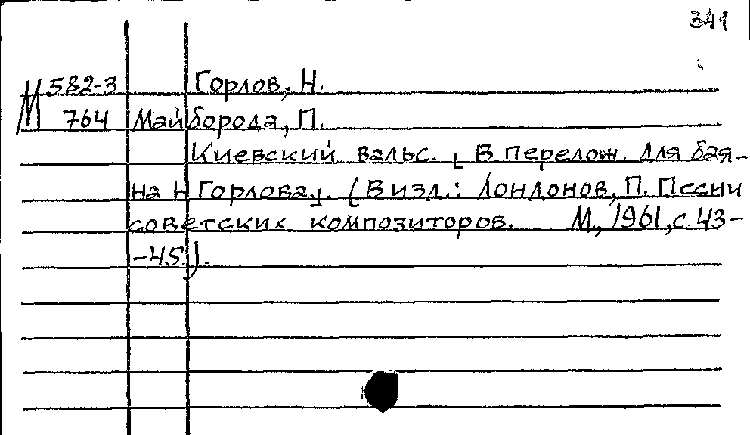 341
М 582-3 Горлов, Н.
764 Майборода, П.
Киевский вальс. [В перелож. для бая-
на Н Горлова]. (В изд.: Лондонов, П. Песни
советских композиторов. М., 1961, с. 43-
-45).